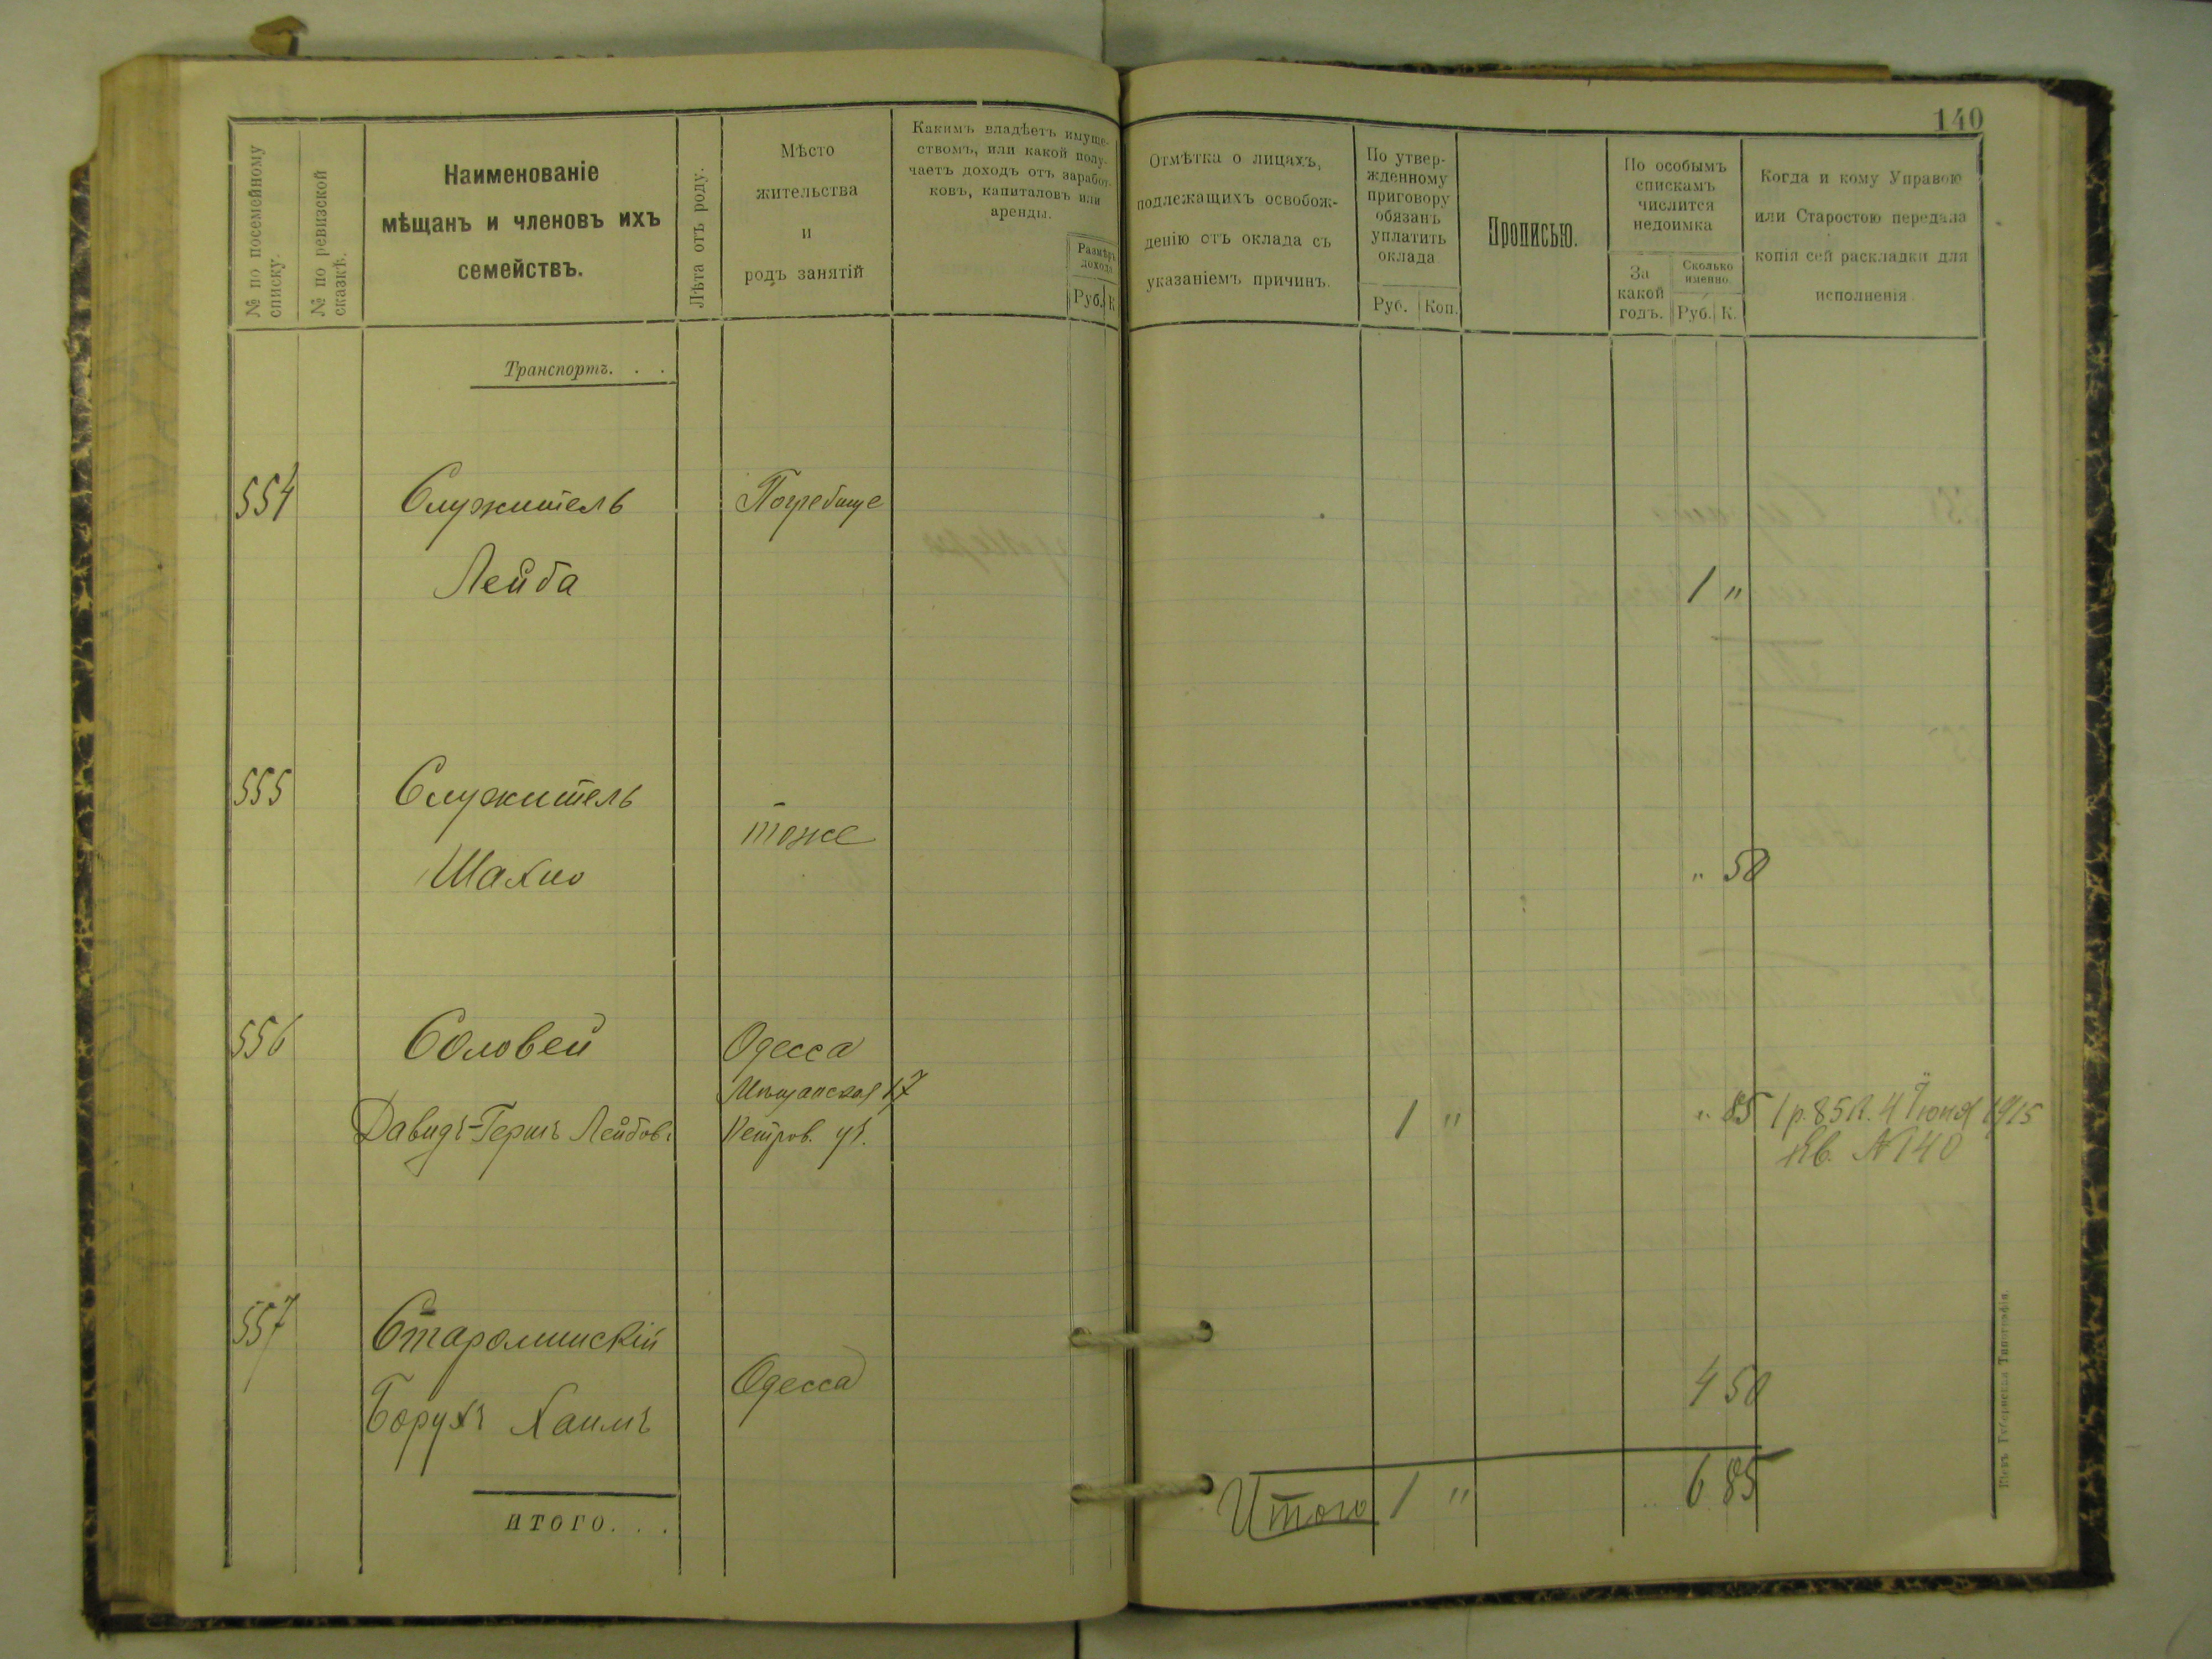 140
№ по посемейному
списку.
№ по ревизской
сказкѣ.
Наименованіе
мѣщанъ и членовъ ихъ
семействъ.
Лѣта отъ роду.
Мѣсто
жительства
и
родъ занятій
Какимъ владѣетъ имуще-
ствомъ, или какой полу-
чаетъ доходъ отъ заработ-
ковъ, капиталовъ или
аренды.
Размѣръ
дохода
Руб. К
Отмѣтка о лицахъ,
подлежащихъ освобож-
денію отъ оклада съ
указаніемъ причинъ.
По утвер-
жденному
приговору
обязанъ
уплатить
оклада
Руб. Коп.
Прописью.
По особымъ
спискамъ
числится
недоимка
За
какой
годъ.
Сколько
именно.
Руб. К.
Когда и кому Управою
или Старостою передана
копія сей раскладки для
исполненія
Транспортъ. . .
554 Служитель Погребище
Лейба 1 "
555 Служитель
тоже
Шахно " 50
556 Соловей Одесса
Мѣщанская 17
Давидъ-Гершъ Лейбов. Петров. уч. 1 " " 85 1 р. 85 к. 4 Іюня 1915
Кв. № 140
557 Староминскій
Одесса 4 50
Борухъ Хаимъ
Итого 1 " 6 85
ИТОГО. . .
Кіевъ Губернская Типографія.